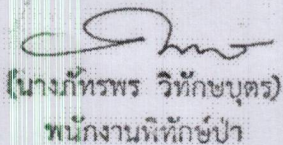 (นางภัทรพร วิทักษบุตร)
พนักงานพิทักษ์ป่า